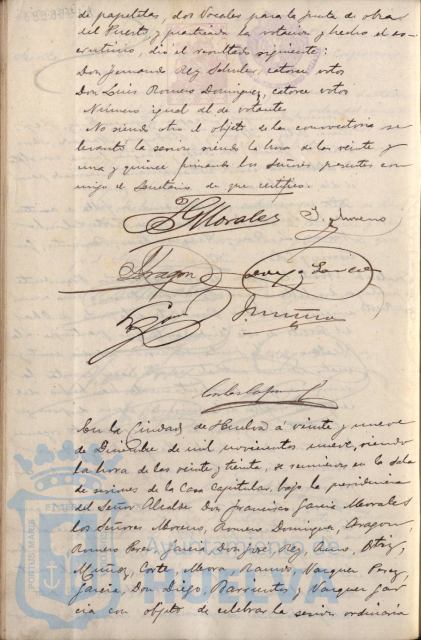 de papeletas, dos Vocales para la junta de obras
del Puerto, y practicada la votación y hecho el es-
crutinio, dio el resultado siguiente:
Don Fernando Rey, catorce votos
Don Luis Romero Dominguez, catorce votos
Número igual al de votante
No siendo otro el objeto de la convocatoria se
levantó la sesion siendo la hora de las veinte y
una y quince firmando los Señores presentes con
migo el Secretario de que certifico.
F G Morales
J. Moreno
Aragon
Garcia
En la Ciudad de Huelva á veinte y nueve
de Diciembre de mil novecientos nueve, siendo
la hora de las veinte y treinta, se reunieron en la Sala
de sesiones de la Casa Capitular, bajo la presidencia
del Señor Alcalde Don Francisco Garcia Morales
los Señores Moreno, Romero Dominguez, Aragon,
Romero Perez, Garcia Don José, Rey, Ortiz,
Muñoz, Corte, Mora, Ramos, Vazquez Perez,
Garcia, Don Diego, Barrientos y Vazquez Gar
cia con objeto de celebrar la sesion ordinaria
PORTUS MARIS
Ayuntamiento de
HUELVA